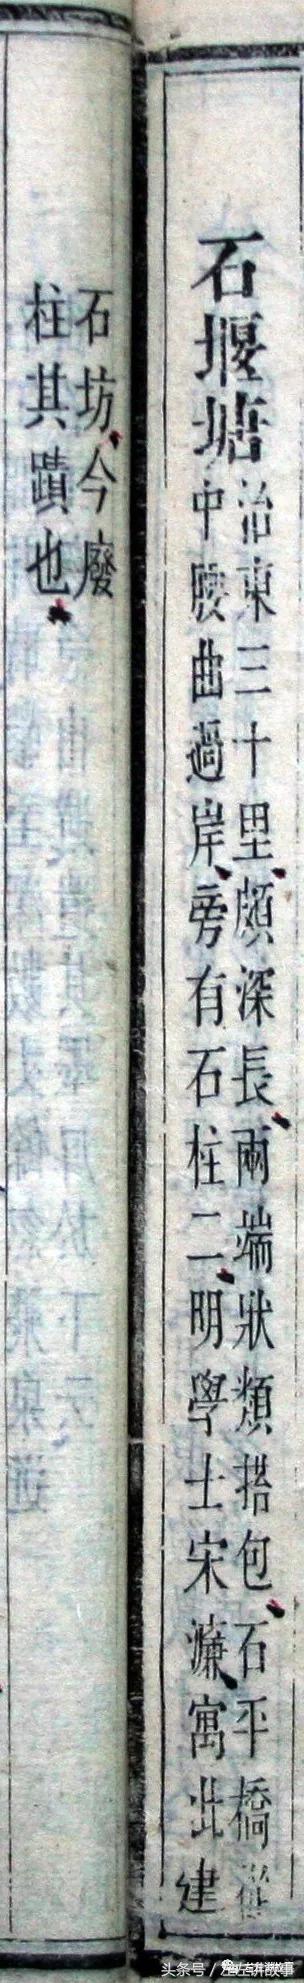 石堰塘
治東三十里頗深長兩端狀類搭包石平橋
中腰曲過岸旁有石柱二明學士宋濂寓此建
石坊今廢
柱其蹟也
头条号 / 左左讲故事